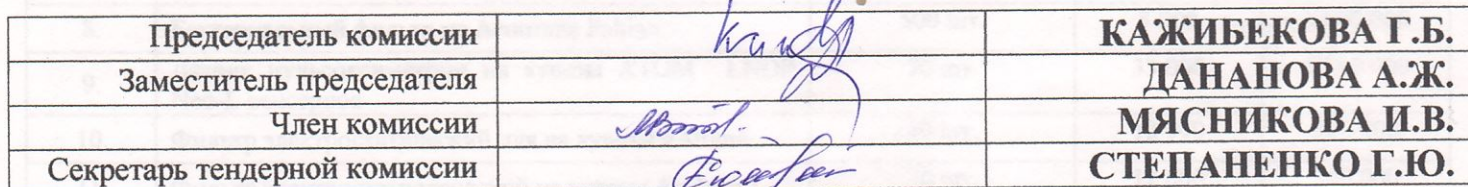 Председатель комиссии КАЖИБЕКОВА Г.Б.
Заместитель председателя ДАНАНОВА А.Ж.
Член комиссии МЯСНИКОВА И.В.
Секретарь тендерной комиссии СТЕПАНЕНКО Г.Ю.